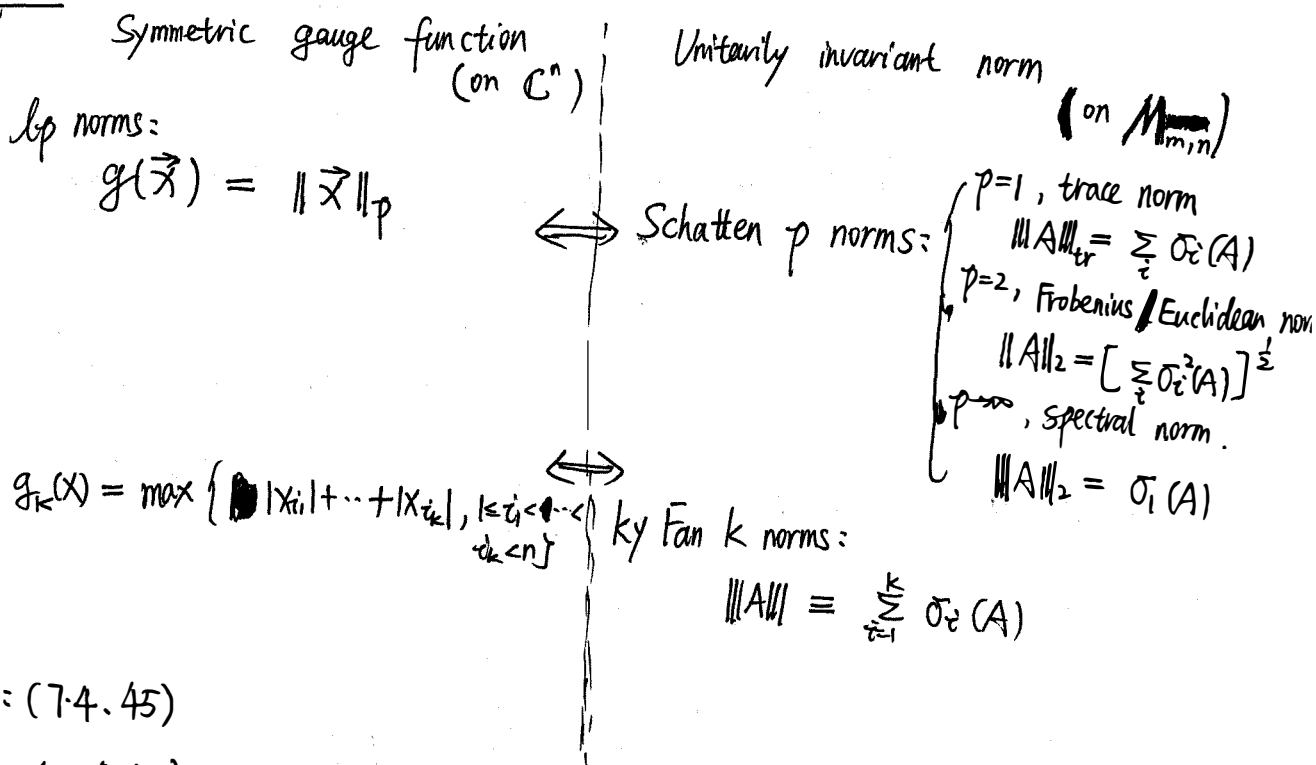 Symmetric gauge function
(on ℂⁿ)
lp norms:
g(x⃗) = ‖x⃗‖ₚ
⟺
g_k(x) = max { |x_{i₁}|+⋯+|x_{i_k}|, 1≤i₁<⋯<
i_k<n}
⟺
: (7.4.45)
Unitarily invariant norm
(on M_{m,n})
Schatten p norms:
p=1, trace norm
|||A|||_{tr} = Σ_i σ_i(A)
p=2, Frobenius/Euclidean nor
‖A‖₂ = [Σ_i σ_i²(A)]^{1/2}
p→∞, spectral norm.
|||A|||₂ = σ₁(A)
ky Fan k norms:
|||A||| ≡ Σ_{i=1}^{k} σ_i(A)